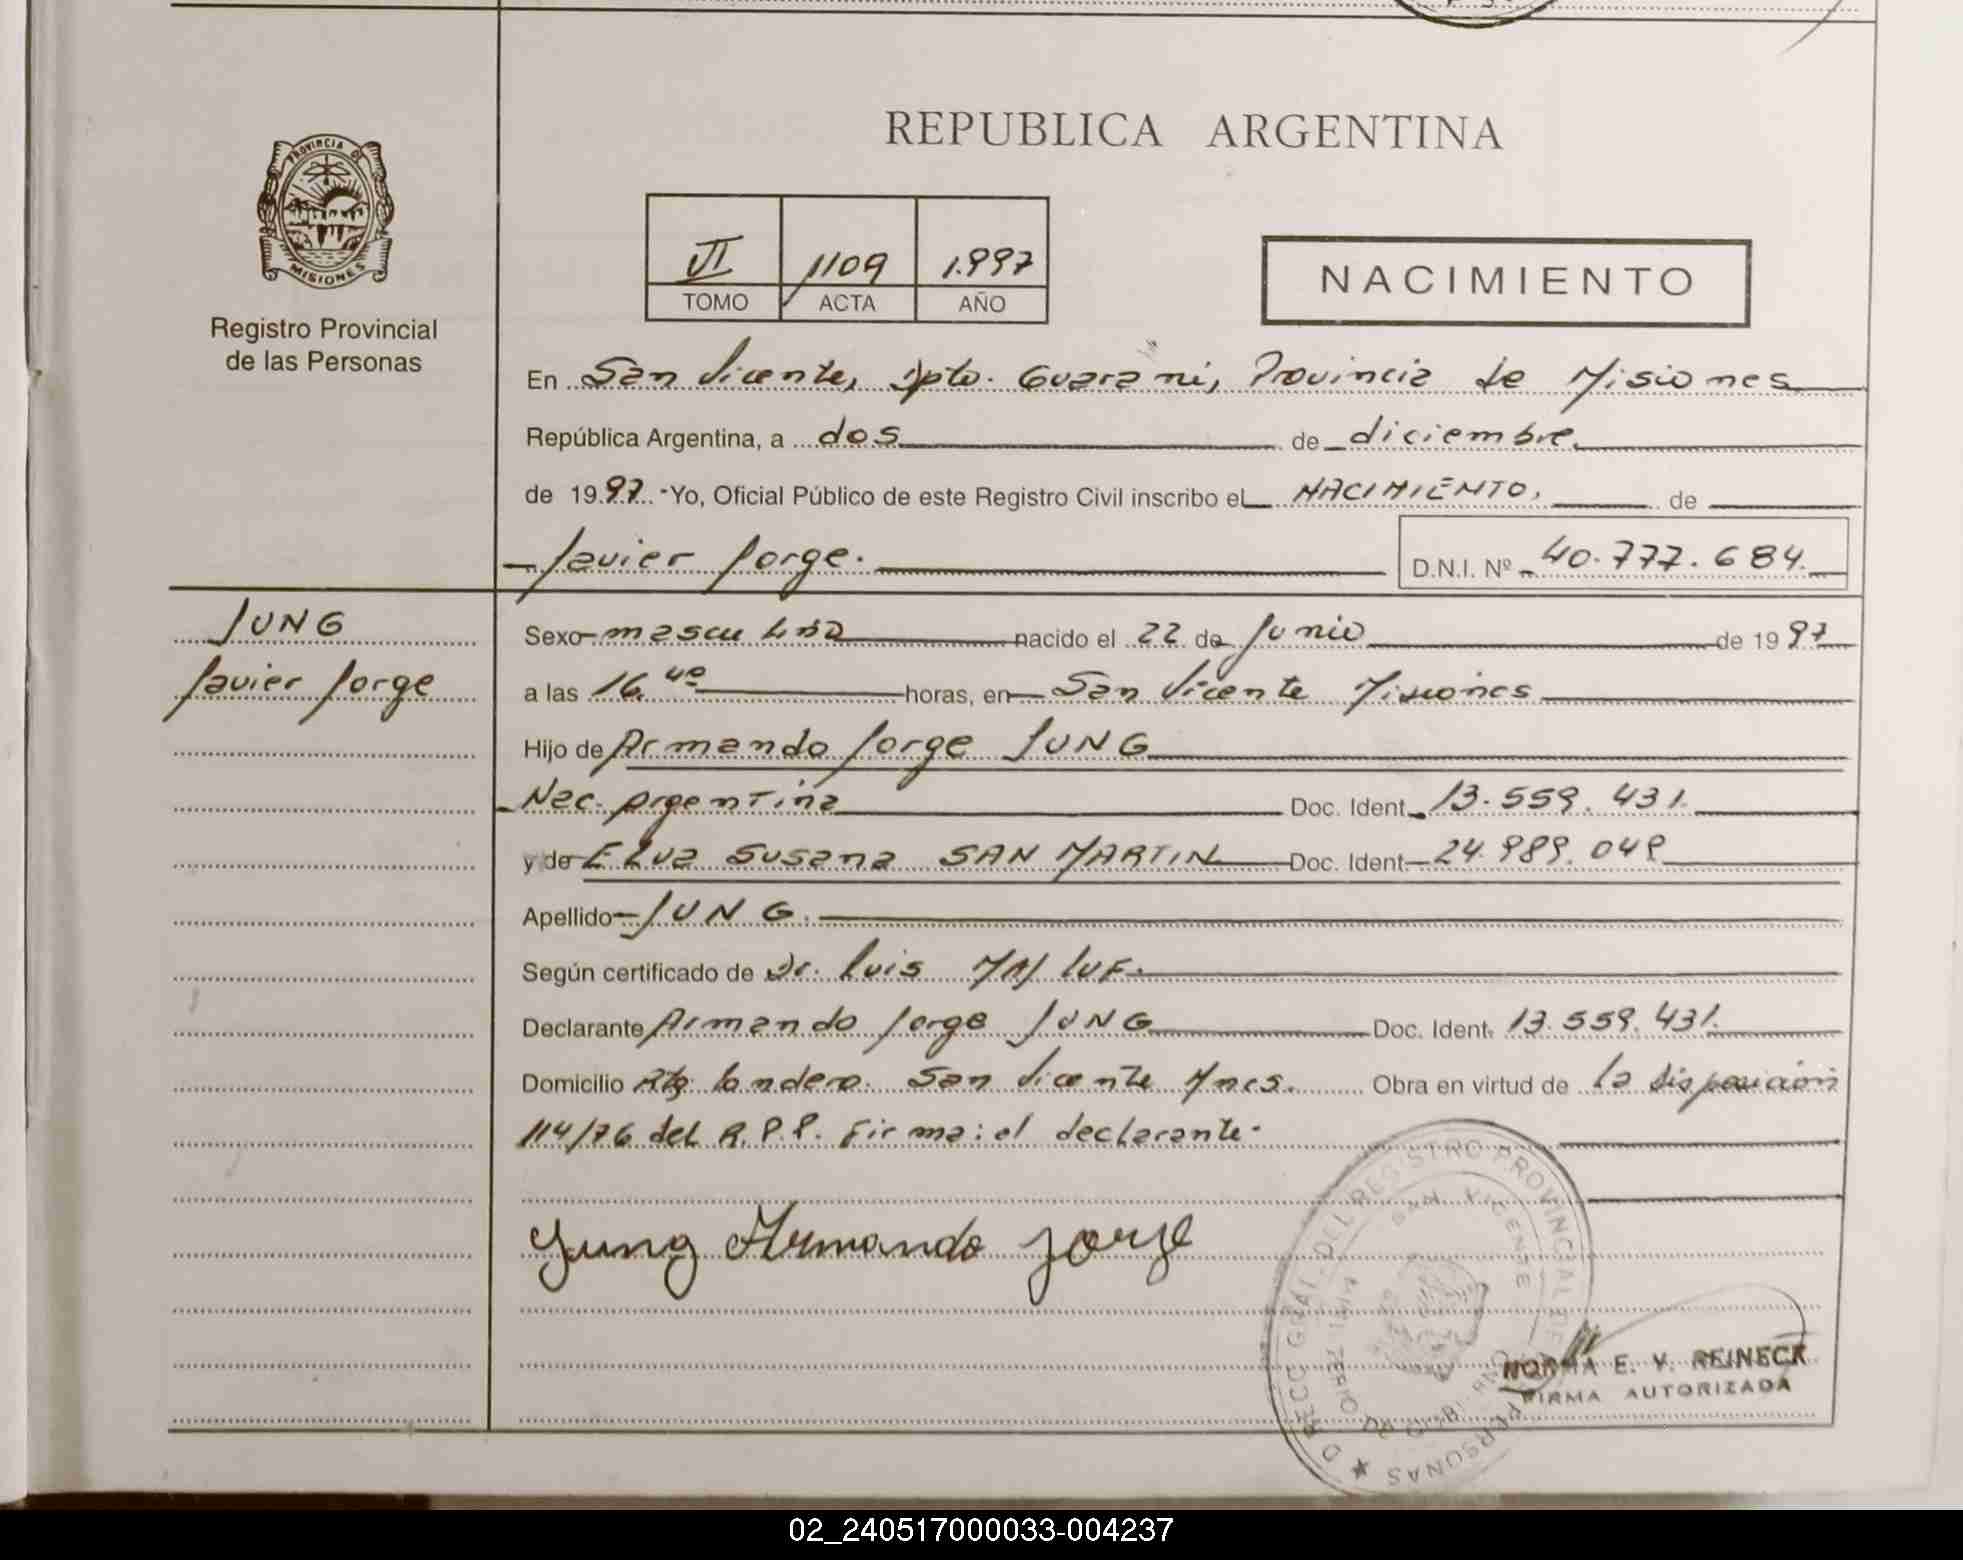 REPUBLICA ARGENTINA
PROVINCIA DE
MISIONES
Registro Provincial
de las Personas
VI 1109 1.997
TOMO ACTA AÑO
NACIMIENTO
En San Vicente, Dpto. Guarani, Provincia de Misiones
República Argentina, a dos de diciembre
de 1997.-Yo, Oficial Público de este Registro Civil inscribo el NACIMIENTO, de
Javier Jorge. D.N.I. Nº 40.777.684.
JUNG
Javier Jorge
Sexo masculino nacido el 22 de Junio de 1997
a las 16,40 horas, en San Vicente Misiones
Hijo de Armando Jorge JUNG
Nac. Argentina Doc. Ident. 13.559.431.
y de ELva Susana SAN MARTIN Doc. Ident. 24.989.049
Apellido JUNG.
Según certificado de Dr. Luis
Declarante Armando Jorge JUNG Doc. Ident. 13.559.431.
Domicilio San Vicente Mnes. Obra en virtud de La disposición
114/76 del R.P.P. Firma: el declarante.
Jung Armando Jorge
DIRECC. GRAL. DEL REGISTRO PROVINCIAL DE LAS PERSONAS
SAN VICENTE
NORMA E. V. REINECK
FIRMA AUTORIZADA
02_240517000033-004237